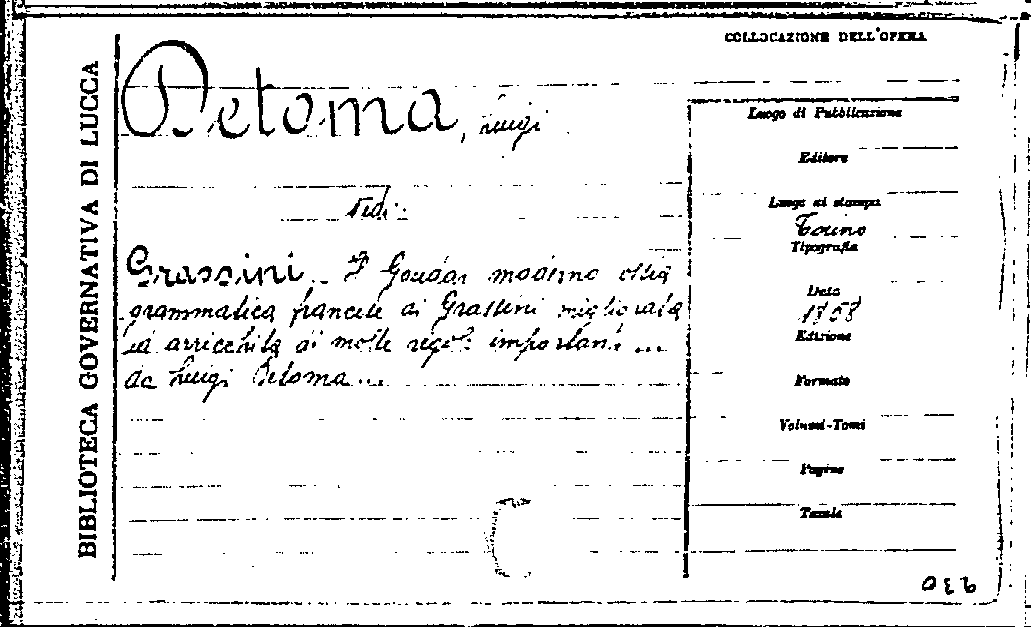 BIBLIOTECA GOVERNATIVA DI LUCCA
COLLOCAZIONE DELL'OPERA
Detoma, Luigi
Vedi:
Grassini _ Il Goudar moderno ossia
grammatica francese di Grassini migliorata
ed arricchita di molte regole importanti ...
da Luigi Detoma...
Luogo di Pubblicazione
Editore
Luogo di stampa
Torino
Tipografia
Data
1858
Edizione
Formato
Volumi-Tomi
Pagine
Tavole